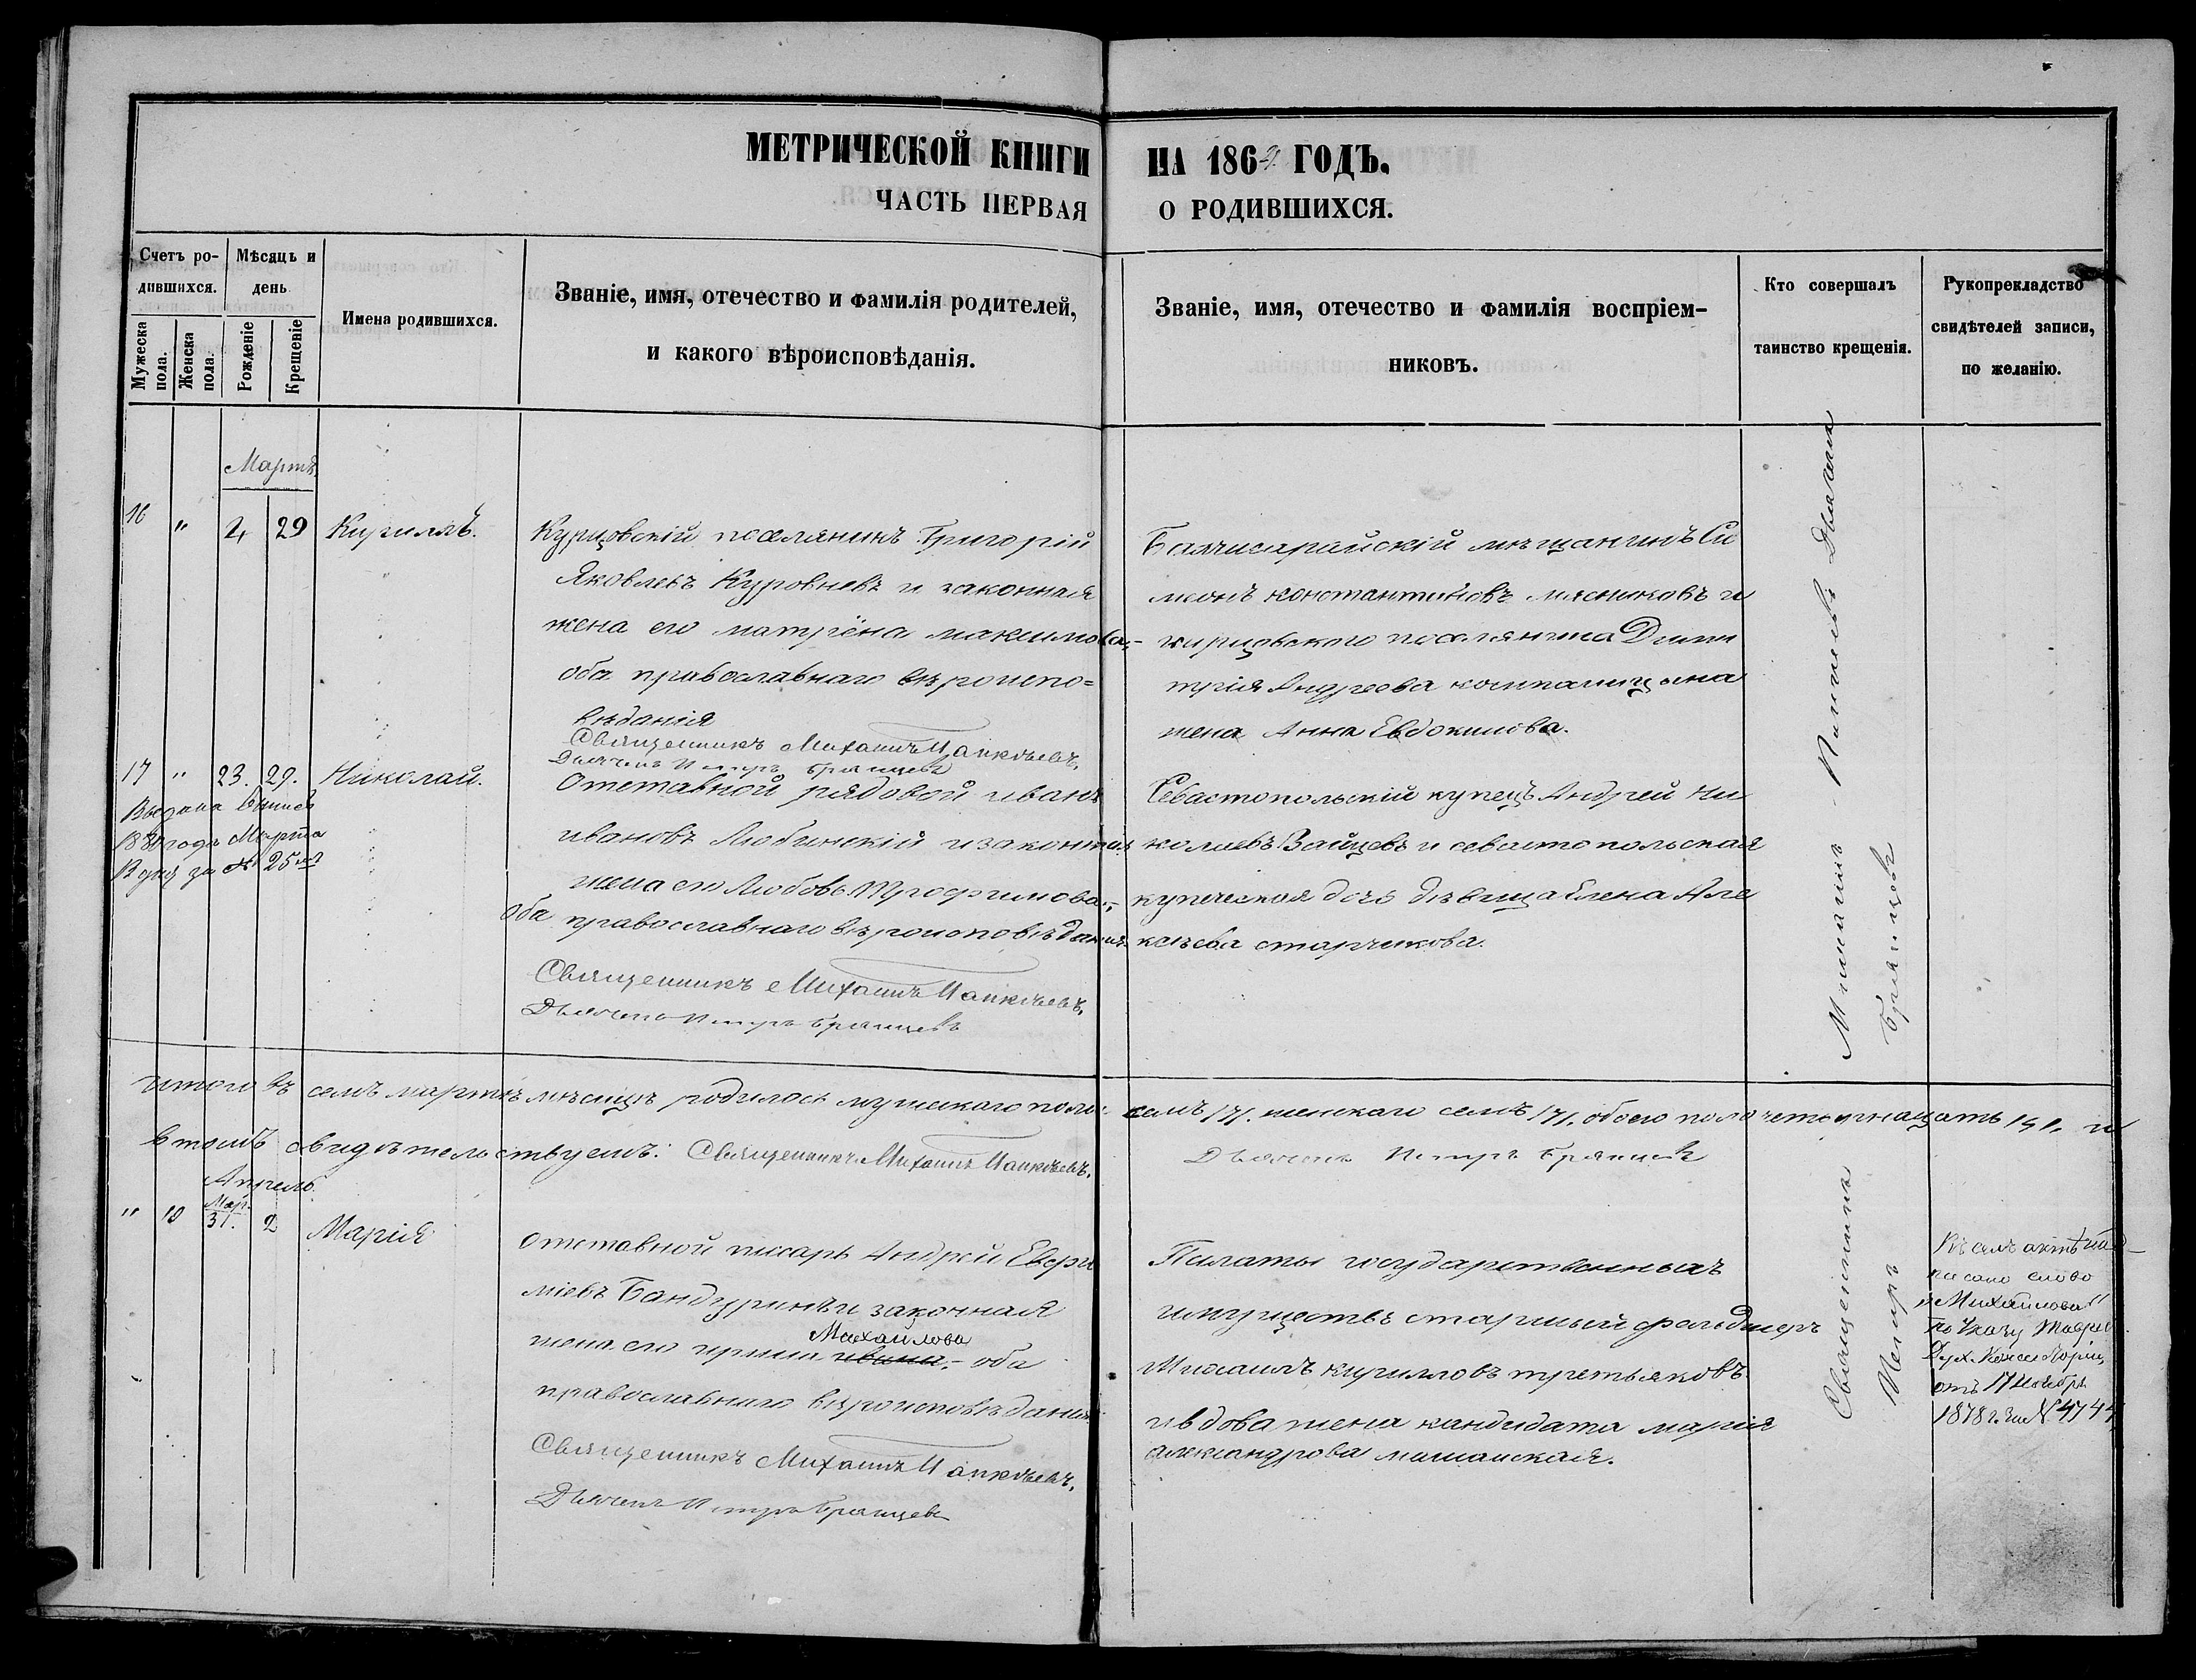 МЕТРИЧЕСКОЙ КНИГИ НА 1869. ГОДЪ.
ЧАСТЬ ПЕРВАЯ О РОДИВШИХСЯ.
Счетъ ро-
дившихся.
Мужеска пола.
Женска пола.
Мѣсяцъ и
день
Рожденіе
Крещеніе
Имена родившихся.
Званіе, имя, отечество и фамилія родителей,
и какого вѣроисповѣданія.
Званіе, имя, отечество и фамилія воспріем-
никовъ.
Кто совершалъ
таинство крещенія.
Рукоприкладство
свидѣтелей записи,
по желанію.
Мартъ
16 " 4 29 Кириллъ.
Курцовскій поселянинъ Григорій
Яковлевъ и законная
жена его матрёна максимова,-
оба православнаго вѣроиспо=
вѣданія
Священникъ Михаилъ
Петръ Брянцевъ
Бахчисарайскій мѣщанинъ Си
меонъ константиновъ мясниковъ и
курцовского поселянина Дими
трія Андреева
жена Анна Евдокимова.
17 " 23. 29. Николай.
Выдана
1880 года Марта
за № 25
Отставной рядовой иванъ
ивановъ Любинскій и законная
жена его Любовь Трофимова,-
оба православнаго вѣроисповѣданія.
Священникъ Михаилъ
Петръ Брянцевъ
Севастопольскій купецъ Андрей Ни
колаевъ Зайцевъ и севастопольская
купеческая дочь дѣвица Елена Але
ксѣева старчикова.
Михаилъ
Брянцевъ
итого въ семъ мартѣ мѣсяцѣ родилось мужескаго пола семь /7/. женскаго семь /7/. обоего пола четырнадцать 14. и
въ томъ свидѣтельствуемъ: Священникъ Михаилъ
Петръ Брянцевъ
Апрель.
" 8 Мар. 31. 2 Марія
отставной писарь Андрей Евфи
міевъ Бандуринъ и законная
Михайлова
жена его ирина ивана,- оба
православнаго вѣроисповѣданія
Священникъ Михаилъ
Петръ Брянцевъ
Палаты государственныхъ
имуществъ старшый фельдшеръ
Михаилъ кирилловъ третьяковъ
и вдова жена кандидата марія
александрова
Священникъ
Петръ
Въ семъ актѣ над-
писано слово
"Михайлова"
по Указу Таврич
Дух. Консисторіи
отъ 17 Ноября
1878 г. за № 4744